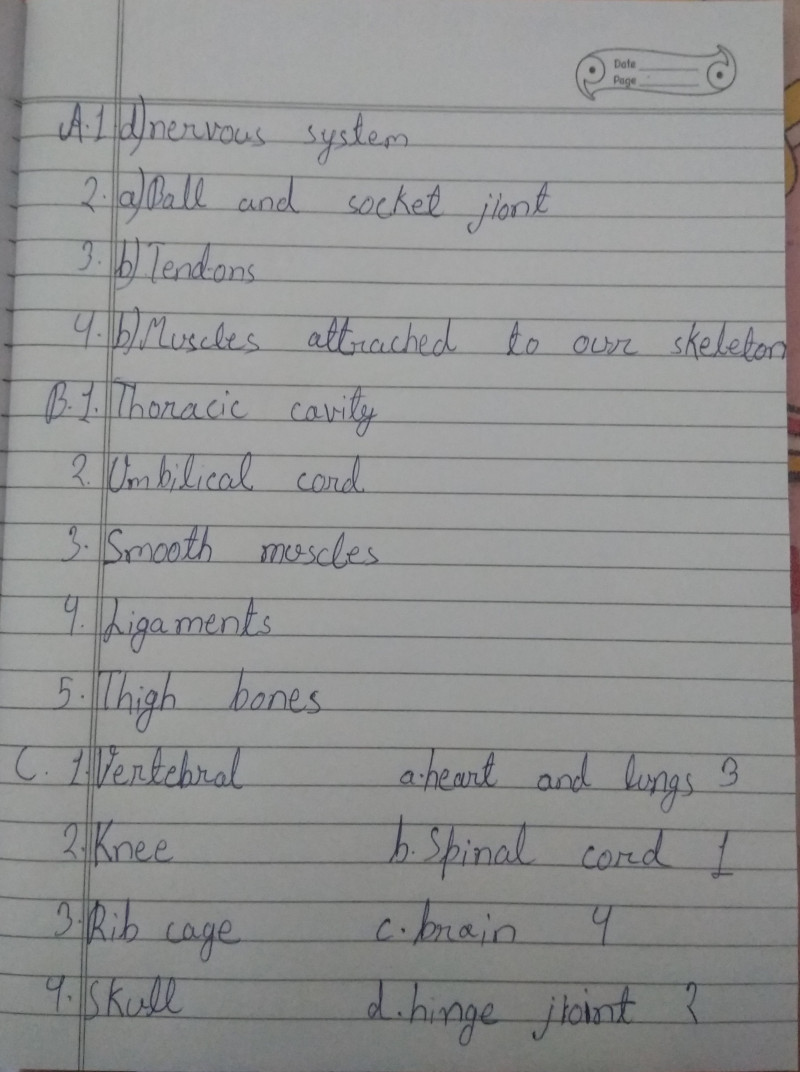 Date
Page
A.1 d)nervous system
2. a)Ball and socket jiont
3. b)Tendons
4. b)Muscles attrached to our skeleton
B.1. Thoracic cavity
2. Umbilical cord
3. Smooth muscles
4. Ligaments
5. Thigh bones
C. 1. Vertebral a.heart and lungs 3
2. Knee b. Spinal cord 1
3. Rib cage c. brain 4
4. Skull d. hinge jioint 2